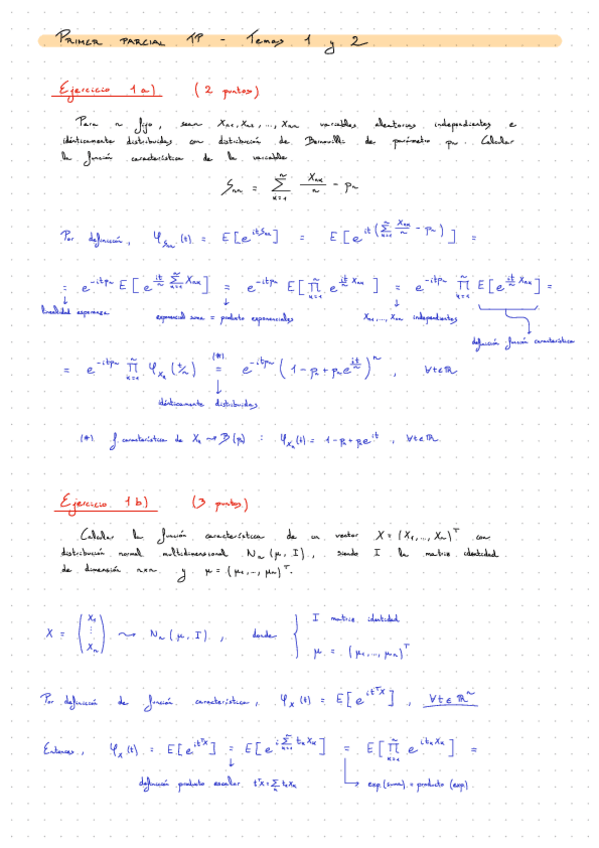 PRIMER PARCIAL TP - Temas 1 y 2
Ejercicio 1a) (2 puntos)
Para n fijo, sean Xn1, Xn2, ..., Xnn variables aleatorias independientes e
idénticamente distribuidas con distribución de Bernoulli de parámetro pn. Calcular
la función característica de la variable
Snn = Σ_{k=1}^{n} Xnk/n - pn
Por definición, φ_{Snn}(t) = E[e^{itSnn}] = E[e^{it(Σ_{k=1}^{n} Xnk/n - pn)}] =
= e^{-itpn} E[e^{it/n Σ_{k=1}^{n} Xnk}] = e^{-itpn} E[∏_{k=1}^{n} e^{it/n Xnk}] = e^{-itpn} ∏_{k=1}^{n} E[e^{it/n Xnk}] =
linealidad esperanza exponencial suma = producto exponenciales Xn1, ..., Xnn independientes
definición función característica
= e^{-itpn} ∏_{k=1}^{n} φ_{Xn}(t/n) (*)= e^{-itpn} (1 - pn + pn e^{it/n})^n , ∀t∈ℝ
idénticamente distribuidas
(*) f. característica de Xn ⤳ B(pn) : φ_{Xn}(t) = 1 - p + pe^{it} , ∀t∈ℝ
Ejercicio 1b) (3 puntos)
Calcular la función característica de un vector X = (X1, ..., Xn)^T con
distribución normal multidimensional Nn(μ, I), siendo I la matriz identidad
de dimensión n×n y μ = (μ1, ..., μn)^T.
X = (X1 ⋮ Xn) ⤳ Nn(μ, I) , donde { I matriz identidad
μ = (μ1, ..., μn)^T
Por definición de función característica, φ_X(t) = E[e^{it^T X}] , ∀t∈ℝ^n
Entonces, φ_X(t) = E[e^{it^T X}] = E[e^{i Σ_{k=1}^{n} tk Xk}] = E[∏_{k=1}^{n} e^{i tk Xk}] =
definición producto escalar t^T X = Σ_k tk Xk exp(suma) = producto(exp)